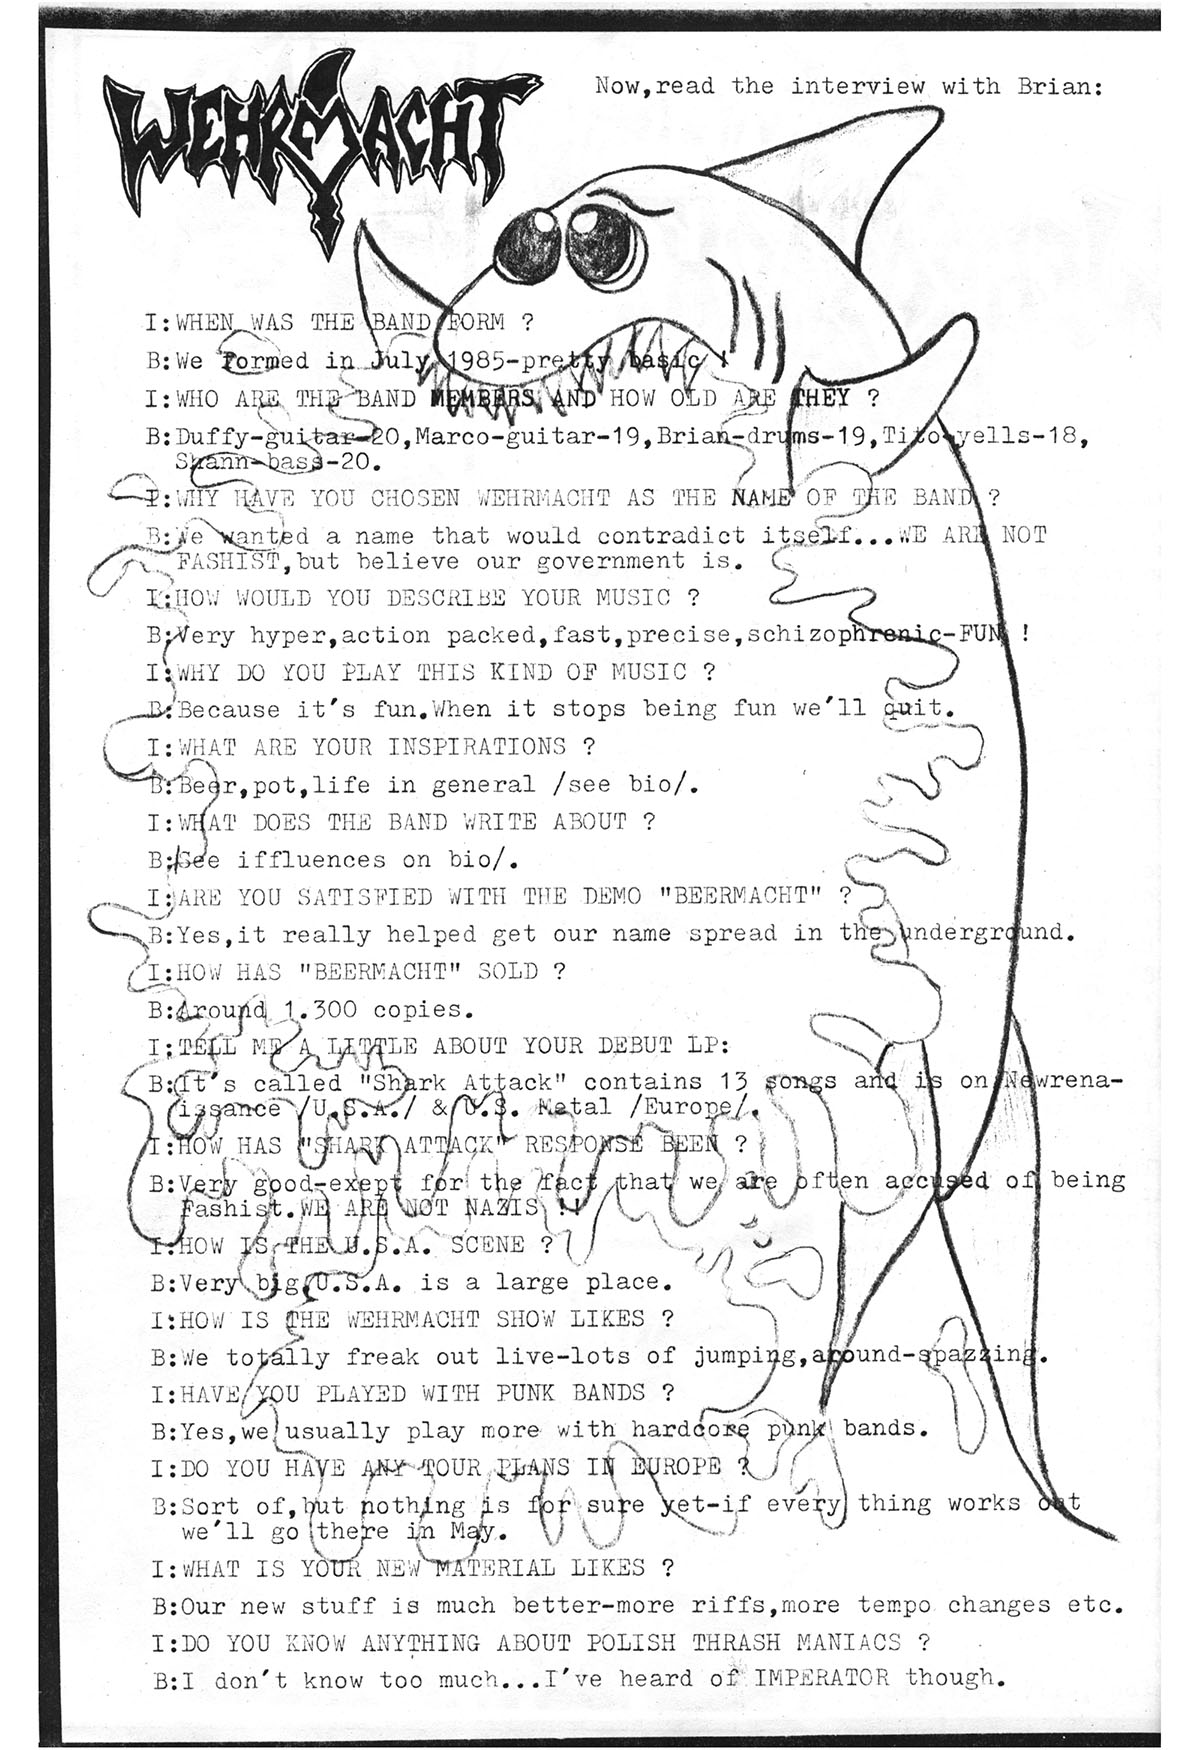 WEHRMACHT
Now,read the interview with Brian:
I:WHEN WAS THE BAND FORM ?
B:We formed in July 1985-pretty basic !
I:WHO ARE THE BAND MEMBERS AND HOW OLD ARE THEY ?
B:Duffy-guitar-20,Marco-guitar-19,Brian-drums-19,Tito-yells-18,
Shann-bass-20.
I:WHY HAVE YOU CHOSEN WEHRMACHT AS THE NAME OF THE BAND ?
B:We wanted a name that would contradict itself...WE ARE NOT
FASHIST,but believe our government is.
I:HOW WOULD YOU DESCRIBE YOUR MUSIC ?
B:Very hyper,action packed,fast,precise,schizophrenic-FUN !
I:WHY DO YOU PLAY THIS KIND OF MUSIC ?
B:Because it's fun.When it stops being fun we'll quit.
I:WHAT ARE YOUR INSPIRATIONS ?
B:Beer,pot,life in general /see bio/.
I:WHAT DOES THE BAND WRITE ABOUT ?
B:/See iffluences on bio/.
I:ARE YOU SATISFIED WITH THE DEMO "BEERMACHT" ?
B:Yes,it really helped get our name spread in the underground.
I:HOW HAS "BEERMACHT" SOLD ?
B:Around 1.300 copies.
I:TELL ME A LITTLE ABOUT YOUR DEBUT LP:
B:It's called "Shark Attack" contains 13 songs and is on Newrena-
issance /U.S.A./ & U.S. Metal /Europe/.
I:HOW HAS "SHARK ATTACK" RESPONSE BEEN ?
B:Very good-exept for the fact that we are often accused of being
Fashist.WE ARE NOT NAZIS !!
I:HOW IS THE U.S.A. SCENE ?
B:Very big,U.S.A. is a large place.
I:HOW IS THE WEHRMACHT SHOW LIKES ?
B:We totally freak out live-lots of jumping,around-spazzing.
I:HAVE YOU PLAYED WITH PUNK BANDS ?
B:Yes,we usually play more with hardcore punk bands.
I:DO YOU HAVE ANY TOUR PLANS IN EUROPE ?
B:Sort of,but nothing is for sure yet-if every thing works out
we'll go there in May.
I:WHAT IS YOUR NEW MATERIAL LIKES ?
B:Our new stuff is much better-more riffs,more tempo changes etc.
I:DO YOU KNOW ANYTHING ABOUT POLISH THRASH MANIACS ?
B:I don't know too much...I've heard of IMPERATOR though.